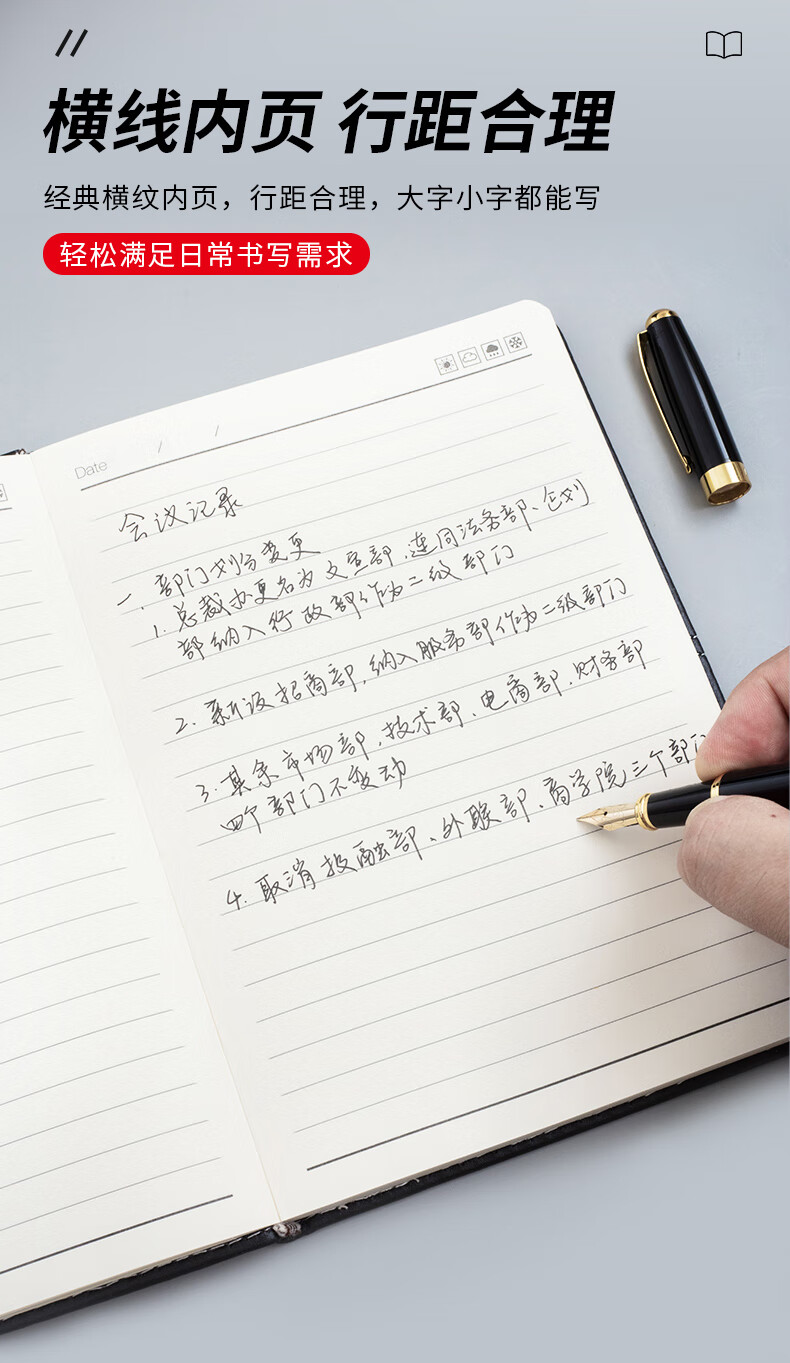 横线内页 行距合理
经典横纹内页，行距合理，大字小字都能写
轻松满足日常书写需求
Date / /
会议记录
一、部门划分变更
1. 总裁办更名为文宣部，连同法务部、企划
部纳入行政部作为二级部门
2. 新设招商部，纳入服务部作为二级部门
3. 其余市场部、技术部、电商部、财务部
四个部门不变动
4. 取消投融部、外联部、商学院三个部门